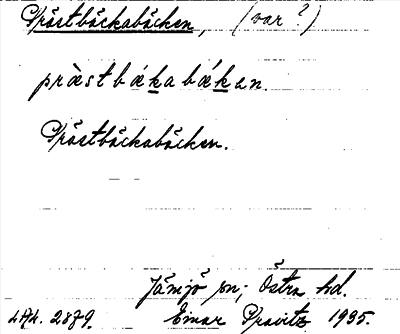 Prästbäckabäcken, (var?)
pràstbákabáken.
Prästbäckabäcken.
Jämjö sn; Östra hd.
2879. Einar Pravitz 1935.